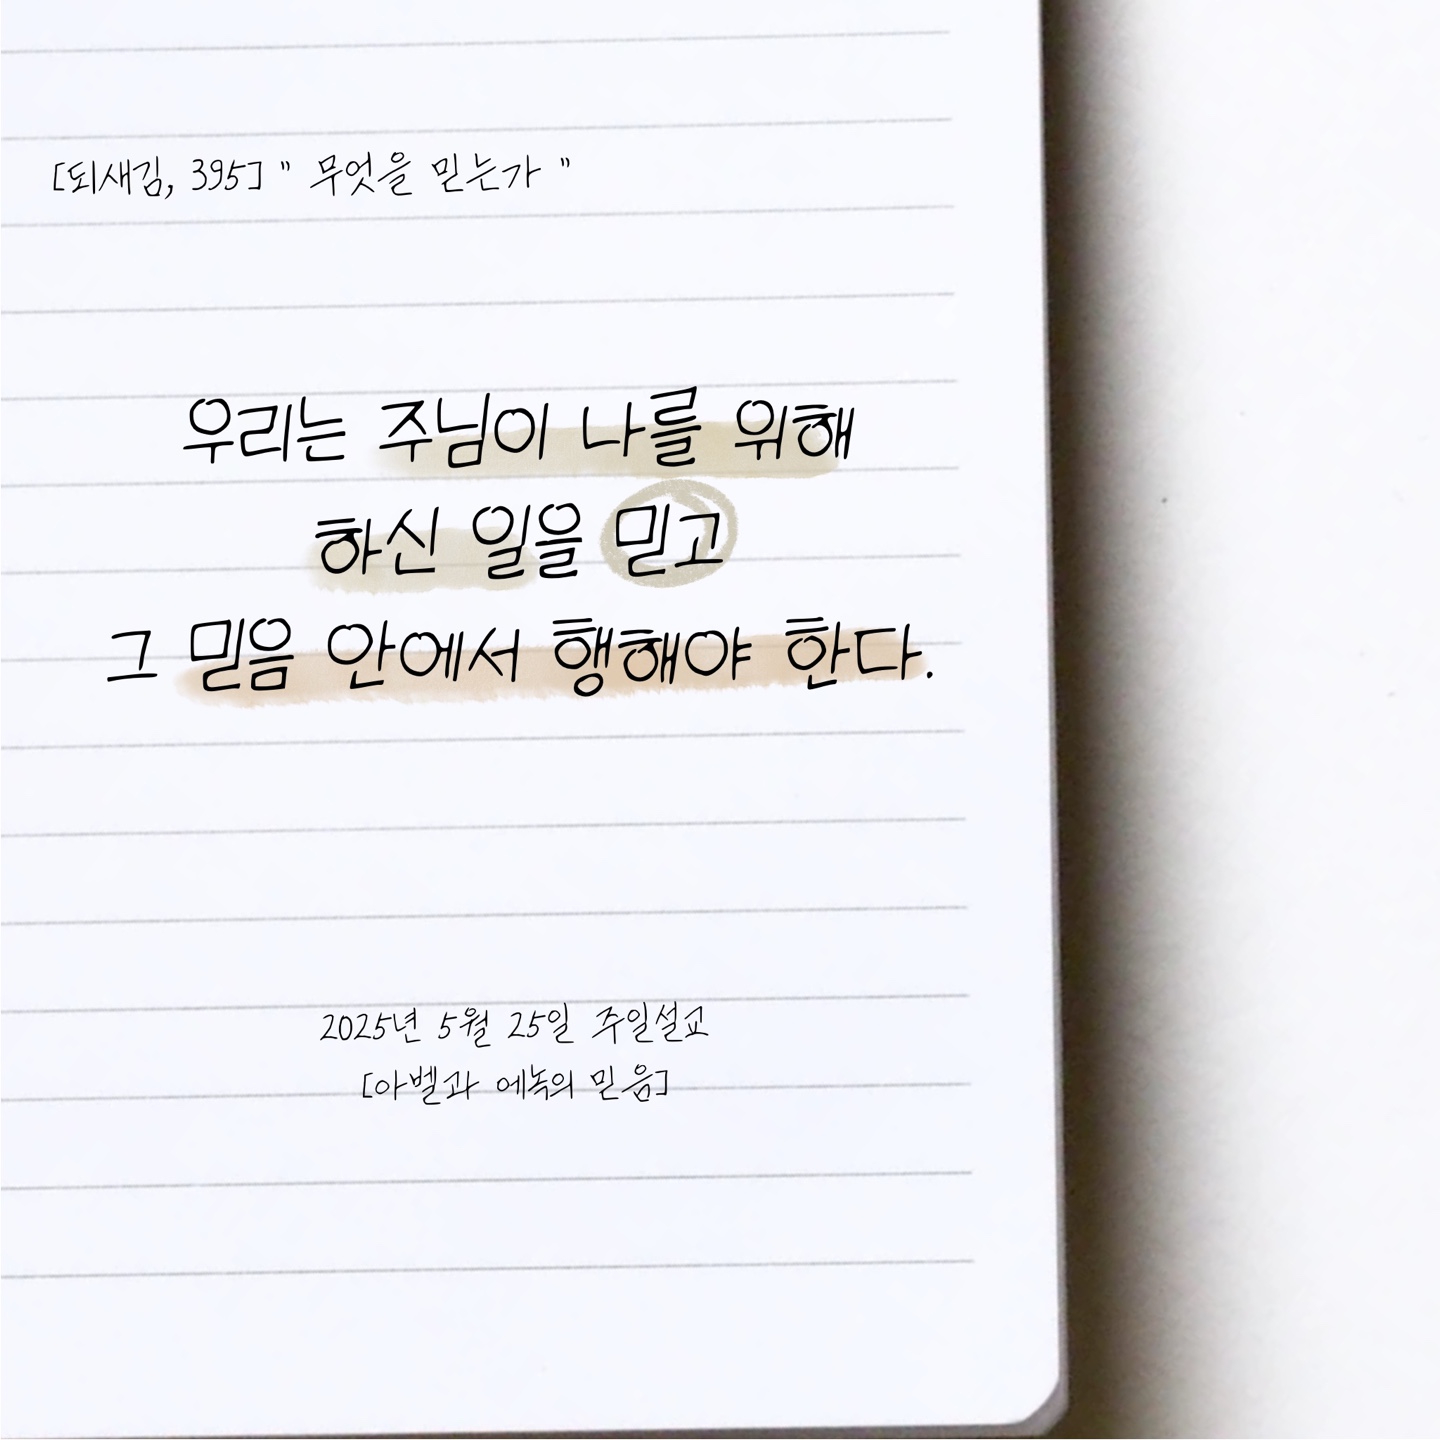 [되새김, 395] " 무엇을 믿는가 "
우리는 주님이 나를 위해
하신 일을 믿고
그 믿음 안에서 행해야 한다.
2025년 5월 25일 주일설교
[아벨과 에녹의 믿음]